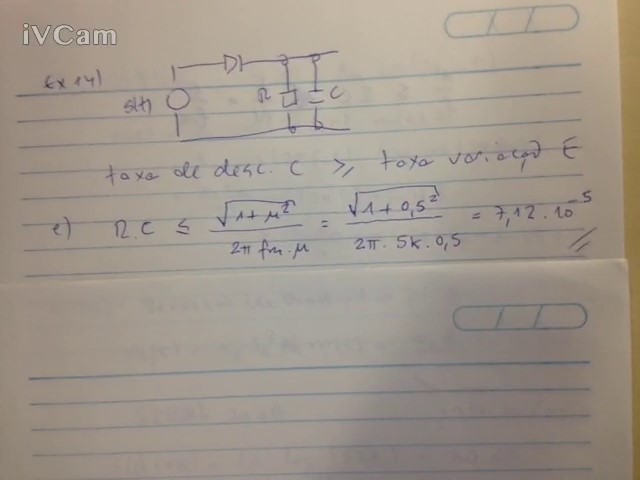 iVCam
Ex 14)
s(t) R C
taxa de desc. C ≥ taxa variação E
e) R.C ≤ √(1+μ²) / 2π fm.μ = √(1+0,5²) / 2π.5k.0,5 = 7,12.10⁻⁵